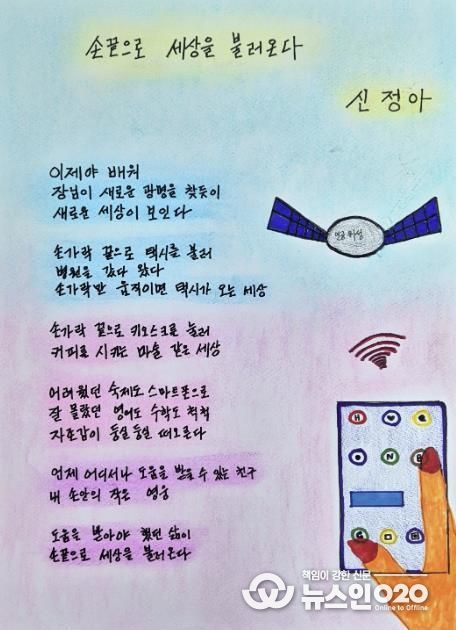 손끝으로 세상을 불러온다
신정아
이제야 배워
장님이 새로운 광명을 찾듯이
새로운 세상이 보인다
손가락 끝으로 택시를 불러
병원을 갔다 왔다
손가락만 움직이면 택시가 오는 세상
인공위성
손가락 끝으로 키오스크를 눌러
커피를 시키는 마술 같은 세상
어려웠던 숙제도 스마트폰으로
잘 몰랐던 영어도 수학도 척척
자존감이 둥실둥실 떠오른다
언제 어디서나 도움을 받을 수 있는 친구
내 손안의 작은 영웅
도움을 받아야 했던 삶이
손끝으로 세상을 불러온다
H
N
책임이 강한 신문
뉴스인020
Online to Offline